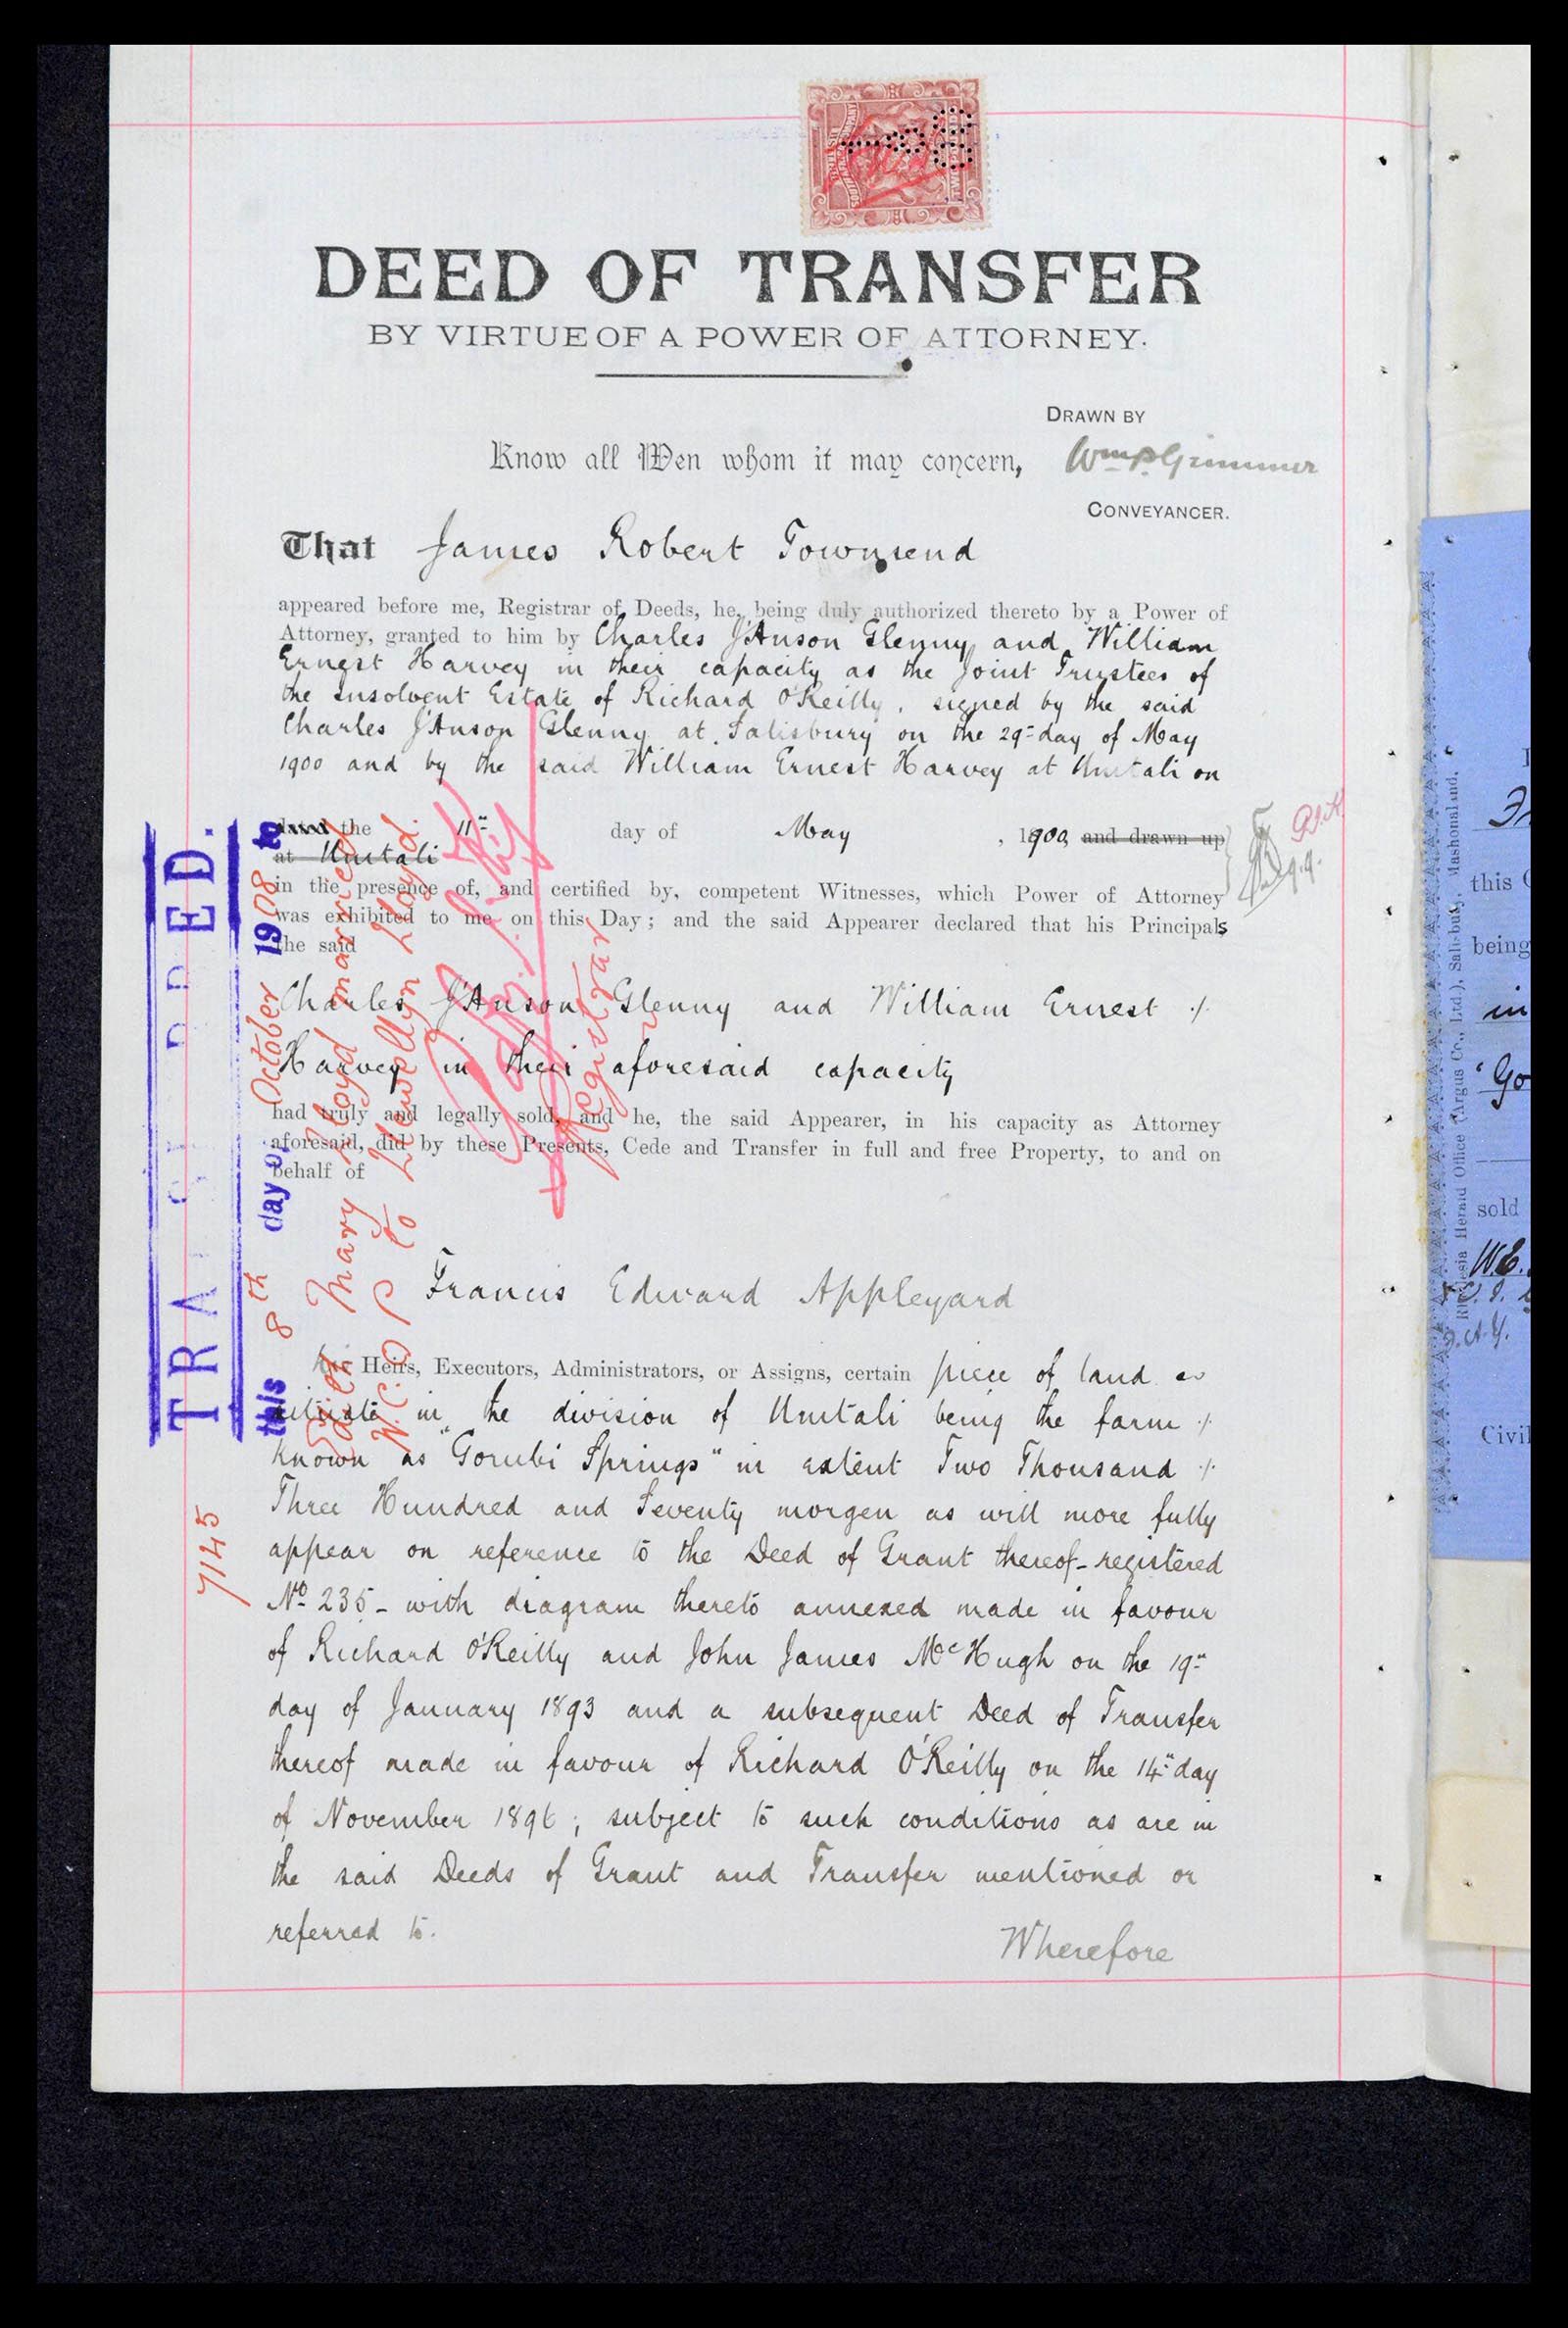 DEED OF TRANSFER
BY VIRTUE OF A POWER OF ATTORNEY.
DRAWN BY
Know all Men whom it may concern,
Wm P. Grimmer
CONVEYANCER.
That James Robert Townsend
appeared before me, Registrar of Deeds, he, being duly authorized thereto by a Power of
Attorney, granted to him by Charles J'Anson Glenny and William
Ernest Harvey in their capacity as the Joint Trustees of
the Insolvent Estate of Richard O'Reilly, signed by the said
Charles J'Anson Glenny at Salisbury on the 29th day of May
1900 and by the said William Ernest Harvey at Umtali on
dated the 11th day of May, 1900, and drawn up
at Umtali
in the presence of, and certified by, competent Witnesses, which Power of Attorney
was exhibited to me on this Day; and the said Appearer declared that his Principals
the said
Charles J'Anson Glenny and William Ernest
Harvey in their aforesaid capacity
had truly and legally sold, and he, the said Appearer, in his capacity as Attorney
aforesaid, did by these Presents, Cede and Transfer in full and free Property, to and on
behalf of
Francis Edward Appleyard
his Heirs, Executors, Administrators, or Assigns, certain piece of land
situate in the division of Umtali being the farm
known as "Gorubi Springs" in extent Two Thousand
Three Hundred and Seventy morgen as will more fully
appear on reference to the Deed of Grant thereof - registered
No 235 - with diagram thereto annexed made in favour
of Richard O'Reilly and John James McHugh on the 19th
day of January 1893 and a subsequent Deed of Transfer
thereof made in favour of Richard O'Reilly on the 14th day
of November 1896; subject to such conditions as are in
the said Deeds of Grant and Transfer mentioned or
referred to.
Wherefore
this 8th day of October 1908 to
Mary Lloyd married
W.C.O.P. to Llewellyn Lloyd.
Registrar
7145
this
being
in
sold
W.E.
Civil